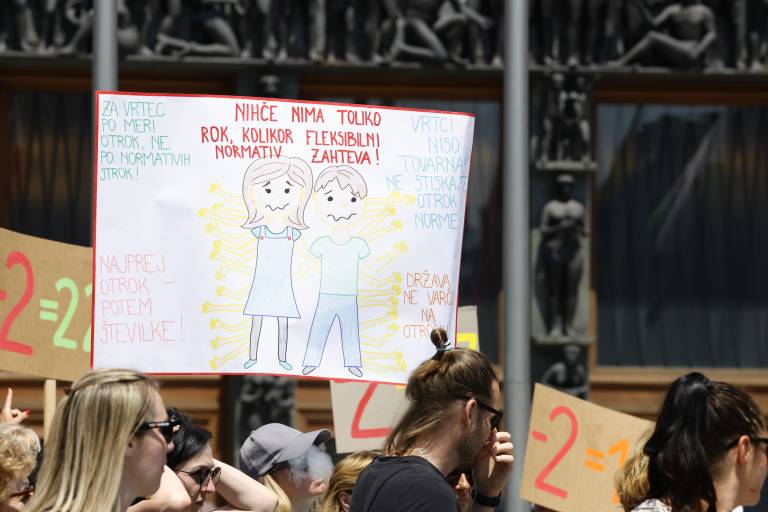 ZA VRTEC
PO MERI
OTROK, NE
PO NORMATIVIH
STROK!
NIHČE NIMA TOLIKO
ROK, KOLIKOR FLEKSIBILNI
NORMATIV ZAHTEVA!
VRTCI
NISO
TOVARNA
NE STISKAJE
OTROK
NORME
NAJPREJ
OTROK –
POTEM
ŠTEVILKE!
DRŽAVA,
NE VARČ
NA
-2=22
2
-2=